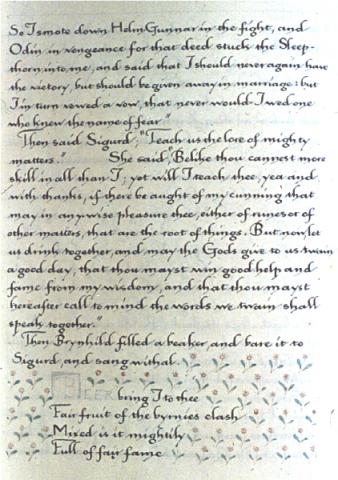 So I smote down Helm Gunnar in the fight, and
Odin in vengeance for that deed stuck the Sleep-
thorn into me, and said that I should never again have
the victory, but should be given away in marriage: but
I in turn vowed a vow, that never would I wed one
who knew the name of fear."
Then said Sigurd, "Teach us the lore of mighty
matters." She said, "Belike thou cannest more
skill in all than I; yet will I teach thee, yea and
with thanks, if there be aught of my cunning that
may in anywise pleasure thee, either of runes or of
other matters, that are the root of things. But now let
us drink together, and may the Gods give to us twain
a good day, that thou mayst win good help and
fame from my wisdom, and that thou mayst
hereafter call to mind the words we twain shall
speak together."
Then Brynhild filled a beaker, and bare it to
Sigurd, and sang withal
BEER bring I to thee
Fair fruit of the byrnies clash
Mixed is it mightily
Full of fair fame